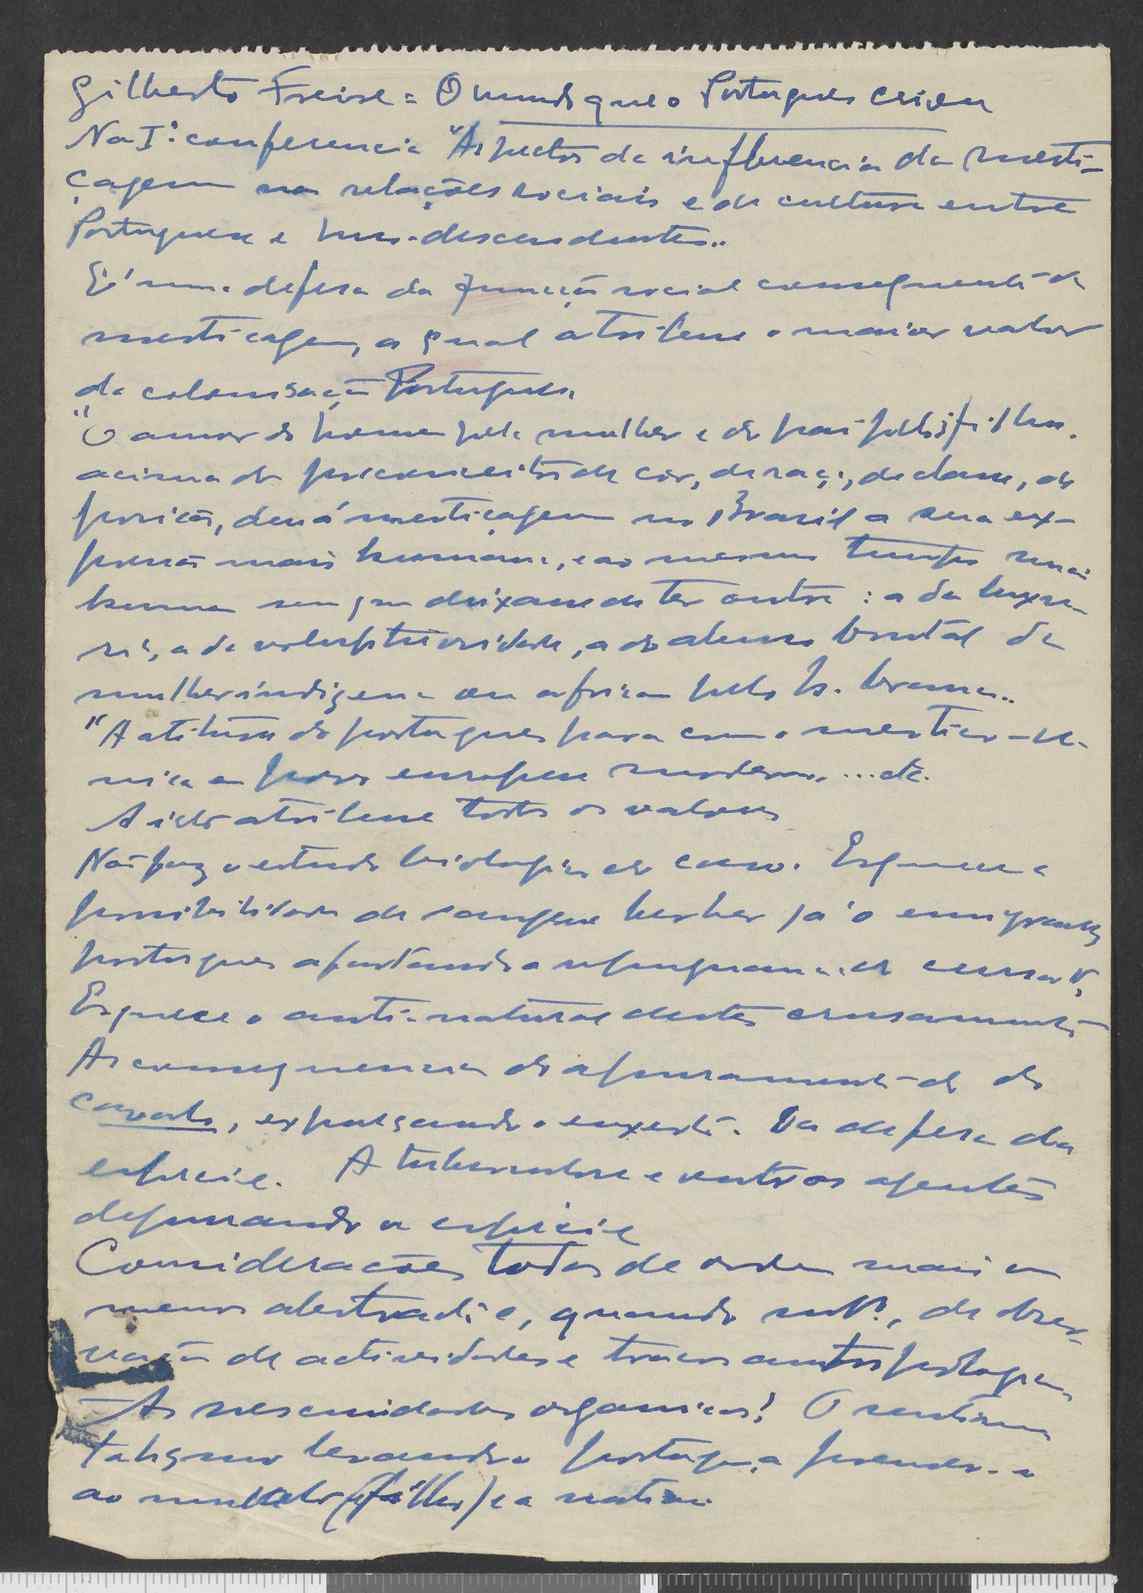 Gilberto Freire = O mundo que o Portugues criou
Na Iª conferencia "Aspectos da influencia da mesti-
çagem nas relações sociais e de cultura entre
Portugueses e luso-descendentes..
É uma defesa da função social consequente da
mestiçagem, a qual atribue o maior valor
da colonisação Portuguesa.
"O amor do homem pela mulher e do pai pelos filhos.
acima de preconceitos de côr, de raça, de classe, de
posição, deu á mestiçagem no Brasil a sua ex-
pressão mais humana, e ao mesmo tempo mais
humana sem que deixasse de ter outra : a da luxu-
ria, a da voluptuosidade, a do abuso brutal da
mulher indigena ou africana pelo h. branco..
"A atitude do portugues para com o mestiço - u-
nica em povos europeus modernos, ...etc.
A isto atribue todos os valores
Não faz o estudo biologico do caso. Esquece a
possibilidade de sangue berber já o emigrante
portugues afastando a repugnancia de
Esquece o anti-natural destes crusamentos
As consequencias do apuramento do
carvalho, expulsando o enxerto. Da defesa da
especie. A tuberculose e outros agentes
depurando a especie
Considerações todas de ordem mais ou
menos abstracta e, quando mt?, de obser-
vação de actividades e traços antropologicos
As necessidades organicas! O sentimen
talismo levando o portugues a prender-se
ao mulato (filho) e a nativa.